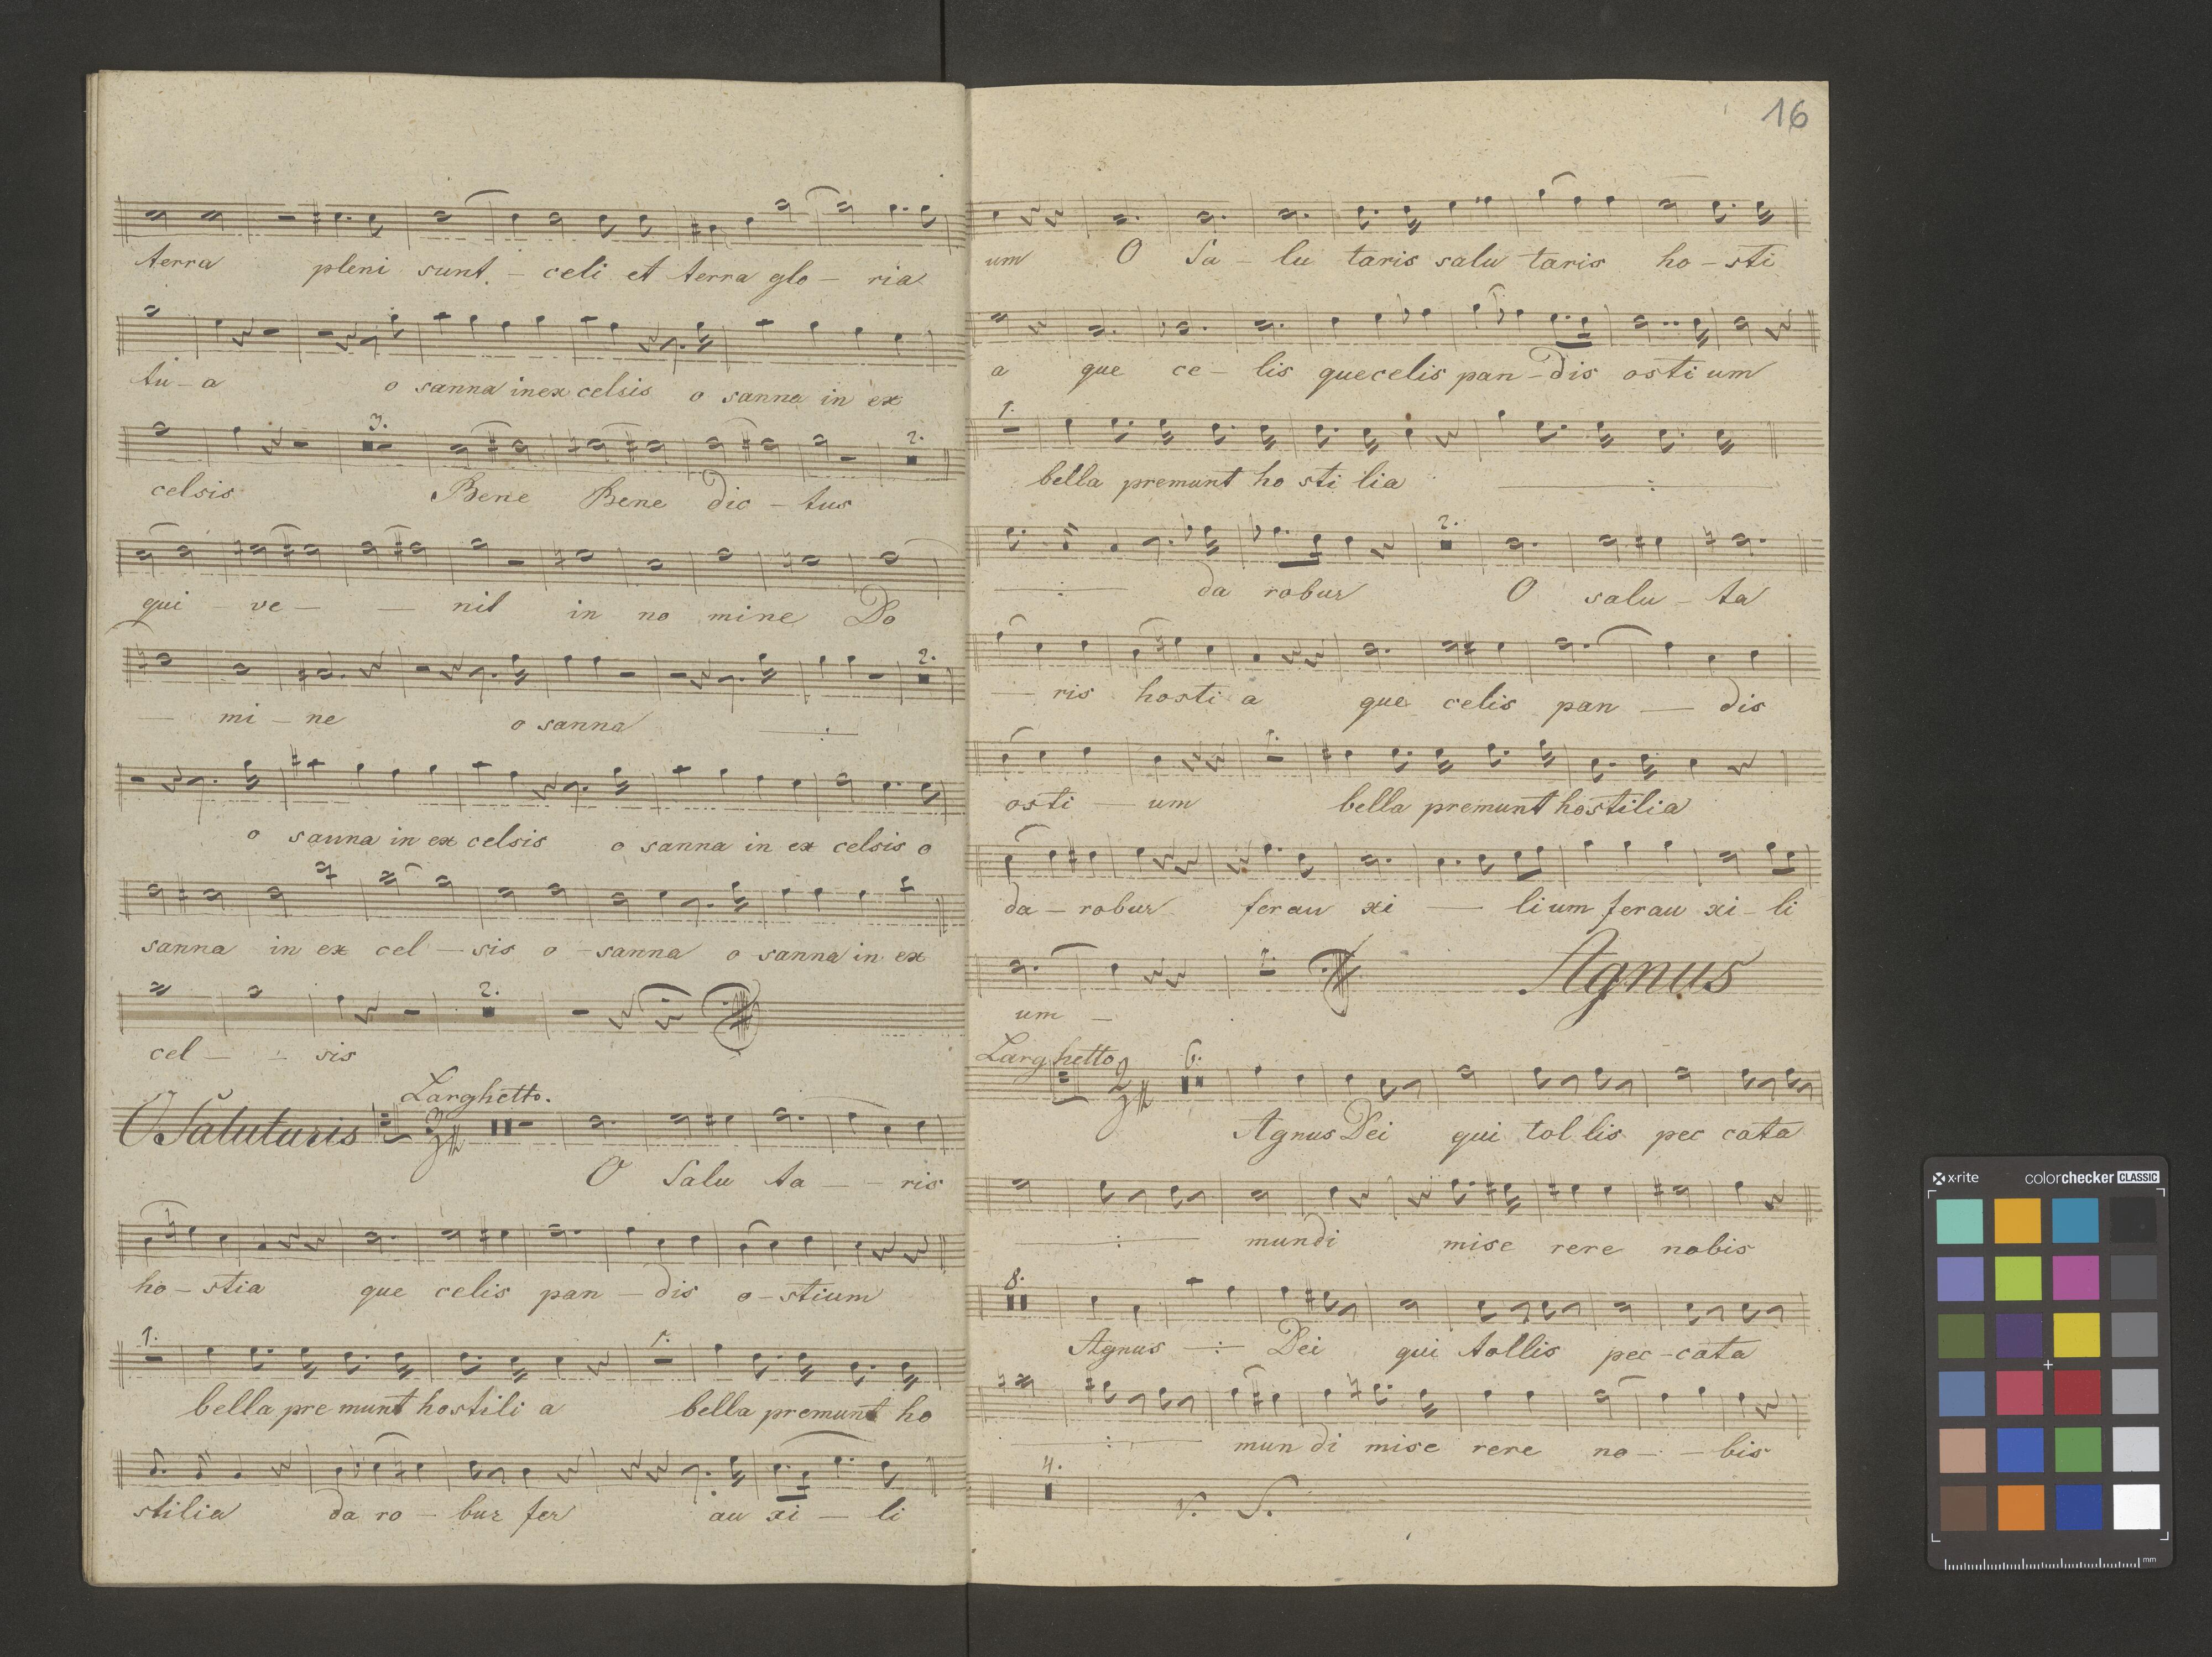 terra pleni sunt. - celi et terra glo - ria
tu - a o sanna in ex celsis o sanna in ex
3. 2.
celsis Bene Bene dic - tus
qui - ve - - nit in no mine Do
2.
- mi - ne o sanna
o sanna in ex celsis o sanna in ex celsis o
sanna in ex cel - sis o - sanna o sanna in ex
2.
cel - - sis
Larghetto.
O Salutaris
O Salu ta - - ris
ho - stia que celis pan - dis o - stium
1. 1.
bella pre munt hostili a bella premunt ho
stilia da ro - bur fer au xi - li
16
um O Sa - lu taris salu taris ho - sti
a que ce - lis que celis pan - dis osti um
1.
bella premunt ho sti lia
2.
da robur O salu - ta
- ris hosti a que celis pan - dis
1.
osti - um bella premunt hostilia
da - robur fer au xi - li um fer au xi - li
1.
Agnus
um -
Larghetto 6.
Agnus Dei qui tol lis pec cata
mundi mise rere nobis
8.
Agnus Dei qui tollis pec - cata
mun di mise rere no - - bis
4.
V. S.
x-rite colorchecker CLASSIC
mm